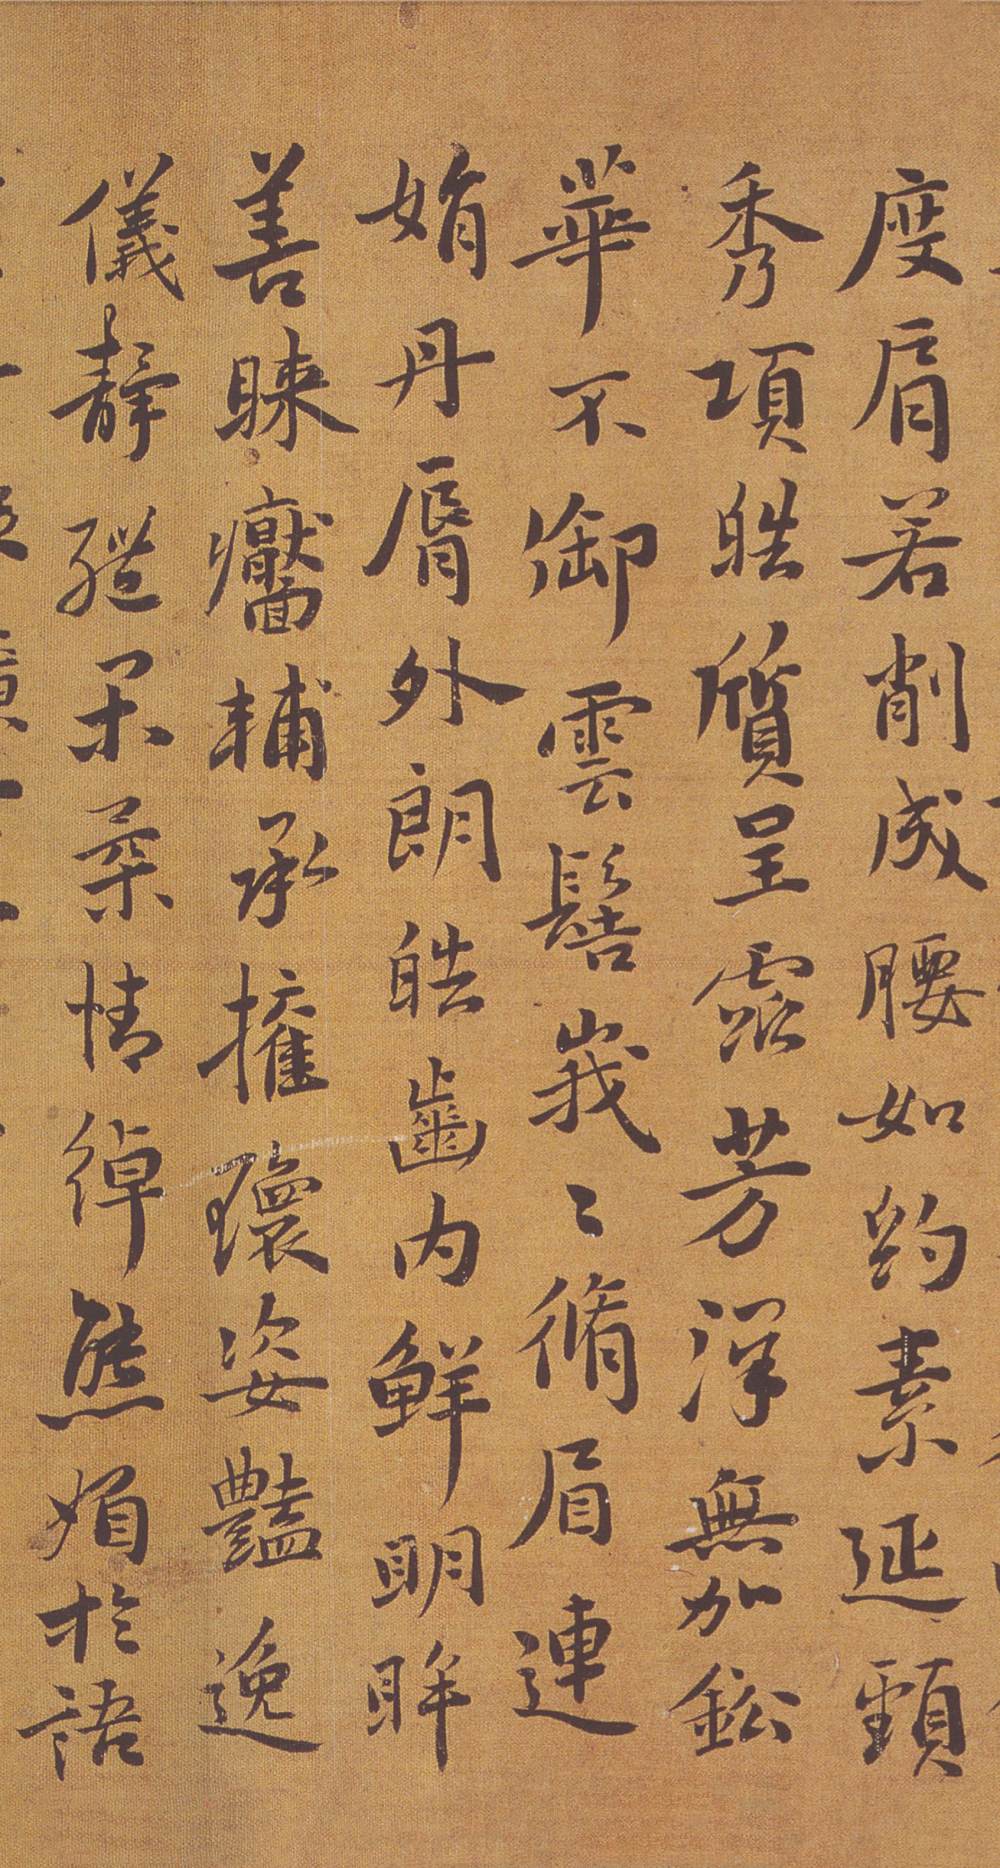 度肩若削成腰如約素延頸
秀項皓質呈露芳澤無加鉛
華不御雲髻峩〻脩眉連
娟丹脣外朗皓齒内鮮明眸
善睞靨輔承權瓌姿豔逸
儀靜體閑柔情綽態媚於語